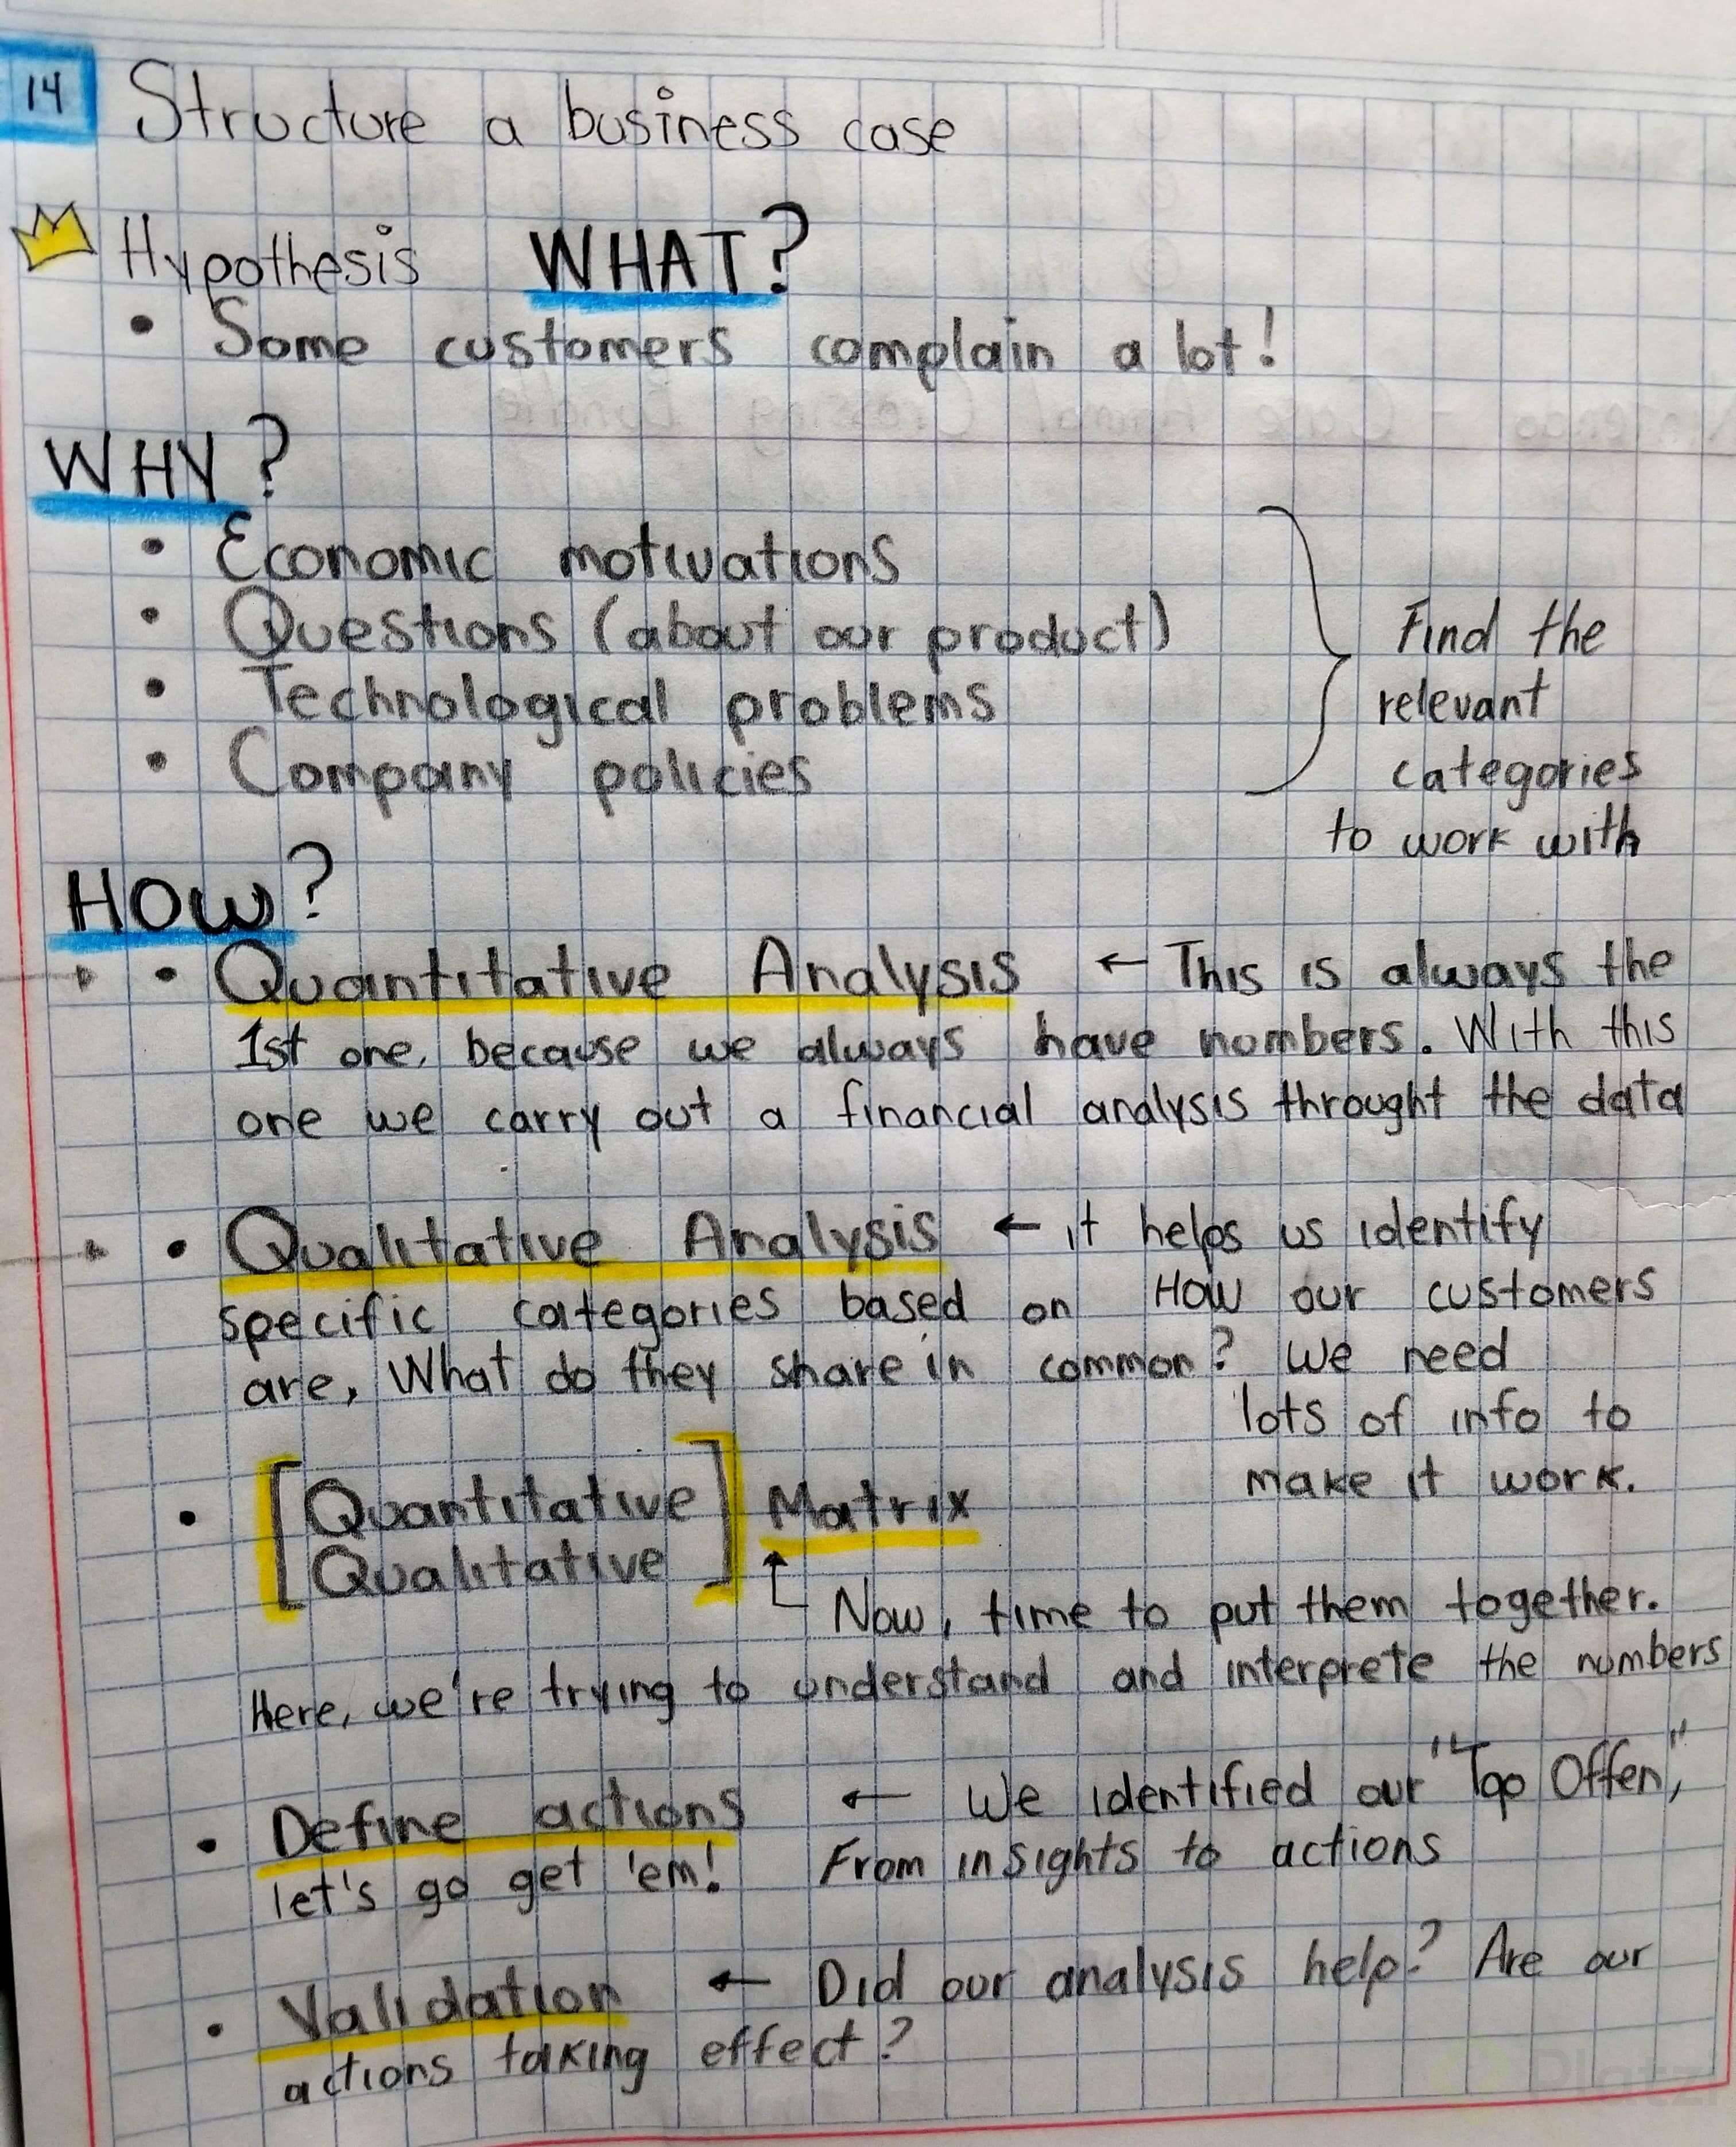 14 Structure a business case
Hypothesis WHAT?
• Some customers complain a lot!
WHY?
• Economic motivations
• Questions (about our product)
• Technological problems
• Company policies
Find the
relevant
categories
to work with
HOW?
• Quantitative Analysis ← This is always the
1st one, because we always have numbers. With this
one we carry out a financial analysis throught the data
• Qualitative Analysis ← it helps us identify
specific categories based on How our customers
are, What do they share in common? We need
lots of info to
make it work.
• [Quantitative
Qualitative] Matrix
Now, time to put them together.
Here, we're trying to understand and interprete the numbers
• Define actions ← We identified our "Top Offen",
let's go get 'em! From insights to actions
• Validation ← Did our analysis help? Are our
actions taking effect?
Platzi